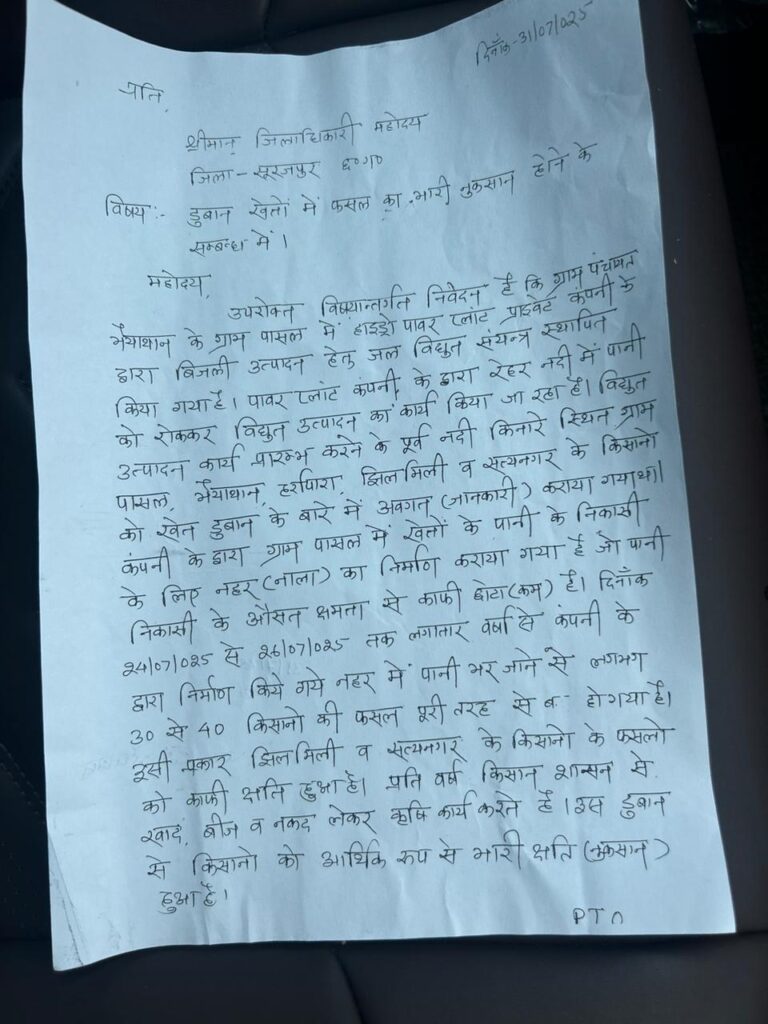 दिनाँक-31/07/025
प्रति,
श्रीमान् जिलाधिकारी महोदय
जिला- सूरजपुर छ०ग०
विषय:- डुबान खेतों में फसल का भारी नुकसान होने के
सम्बन्ध में।
महोदय,
उपरोक्त विषयान्तर्गत निवेदन है कि ग्राम पंचायत
भैयाथान के ग्राम पासल में हाइड्रो पावर प्लांट प्राइवेट कंपनी के
द्वारा बिजली उत्पादन हेतु जल विद्युत संयन्त्र स्थापित
किया गया है। पावर प्लांट कंपनी के द्वारा रेहर नदी में पानी
को रोककर विद्युत उत्पादन का कार्य किया जा रहा है। विद्युत
उत्पादन कार्य प्रारम्भ करने के पूर्व नदी किनारे स्थित ग्राम
पासल, भैयाथान, हर्रापारा, झिलमिली व सत्यनगर के किसानो
को खेत डुबान के बारे में अवगत (जानकारी) कराया गया था।
कंपनी के द्वारा ग्राम पासल में खेतों के पानी के निकासी
के लिए नहर (नाला) का निर्माण कराया गया है जो पानी
निकासी के औसत क्षमता से काफी छोटा (कम) है। दिनाँक
24/07/025 से 26/07/025 तक लगातार वर्षा से कंपनी के
द्वारा निर्माण किये गये नहर में पानी भर जाने से लगभग
30 से 40 किसानो की फसल पूरी तरह से हो गया है।
इसी प्रकार झिलमिली व सत्यनगर के किसानो के फसलो
को काफी क्षति हुआ है। प्रति वर्ष किसान शासन से
खाद, बीज व नकद लेकर कृषि कार्य करते है। इस डुबान
से किसानो को आर्थिक रुप से भारी क्षति (नुकसान)
हुआ है।
PTO